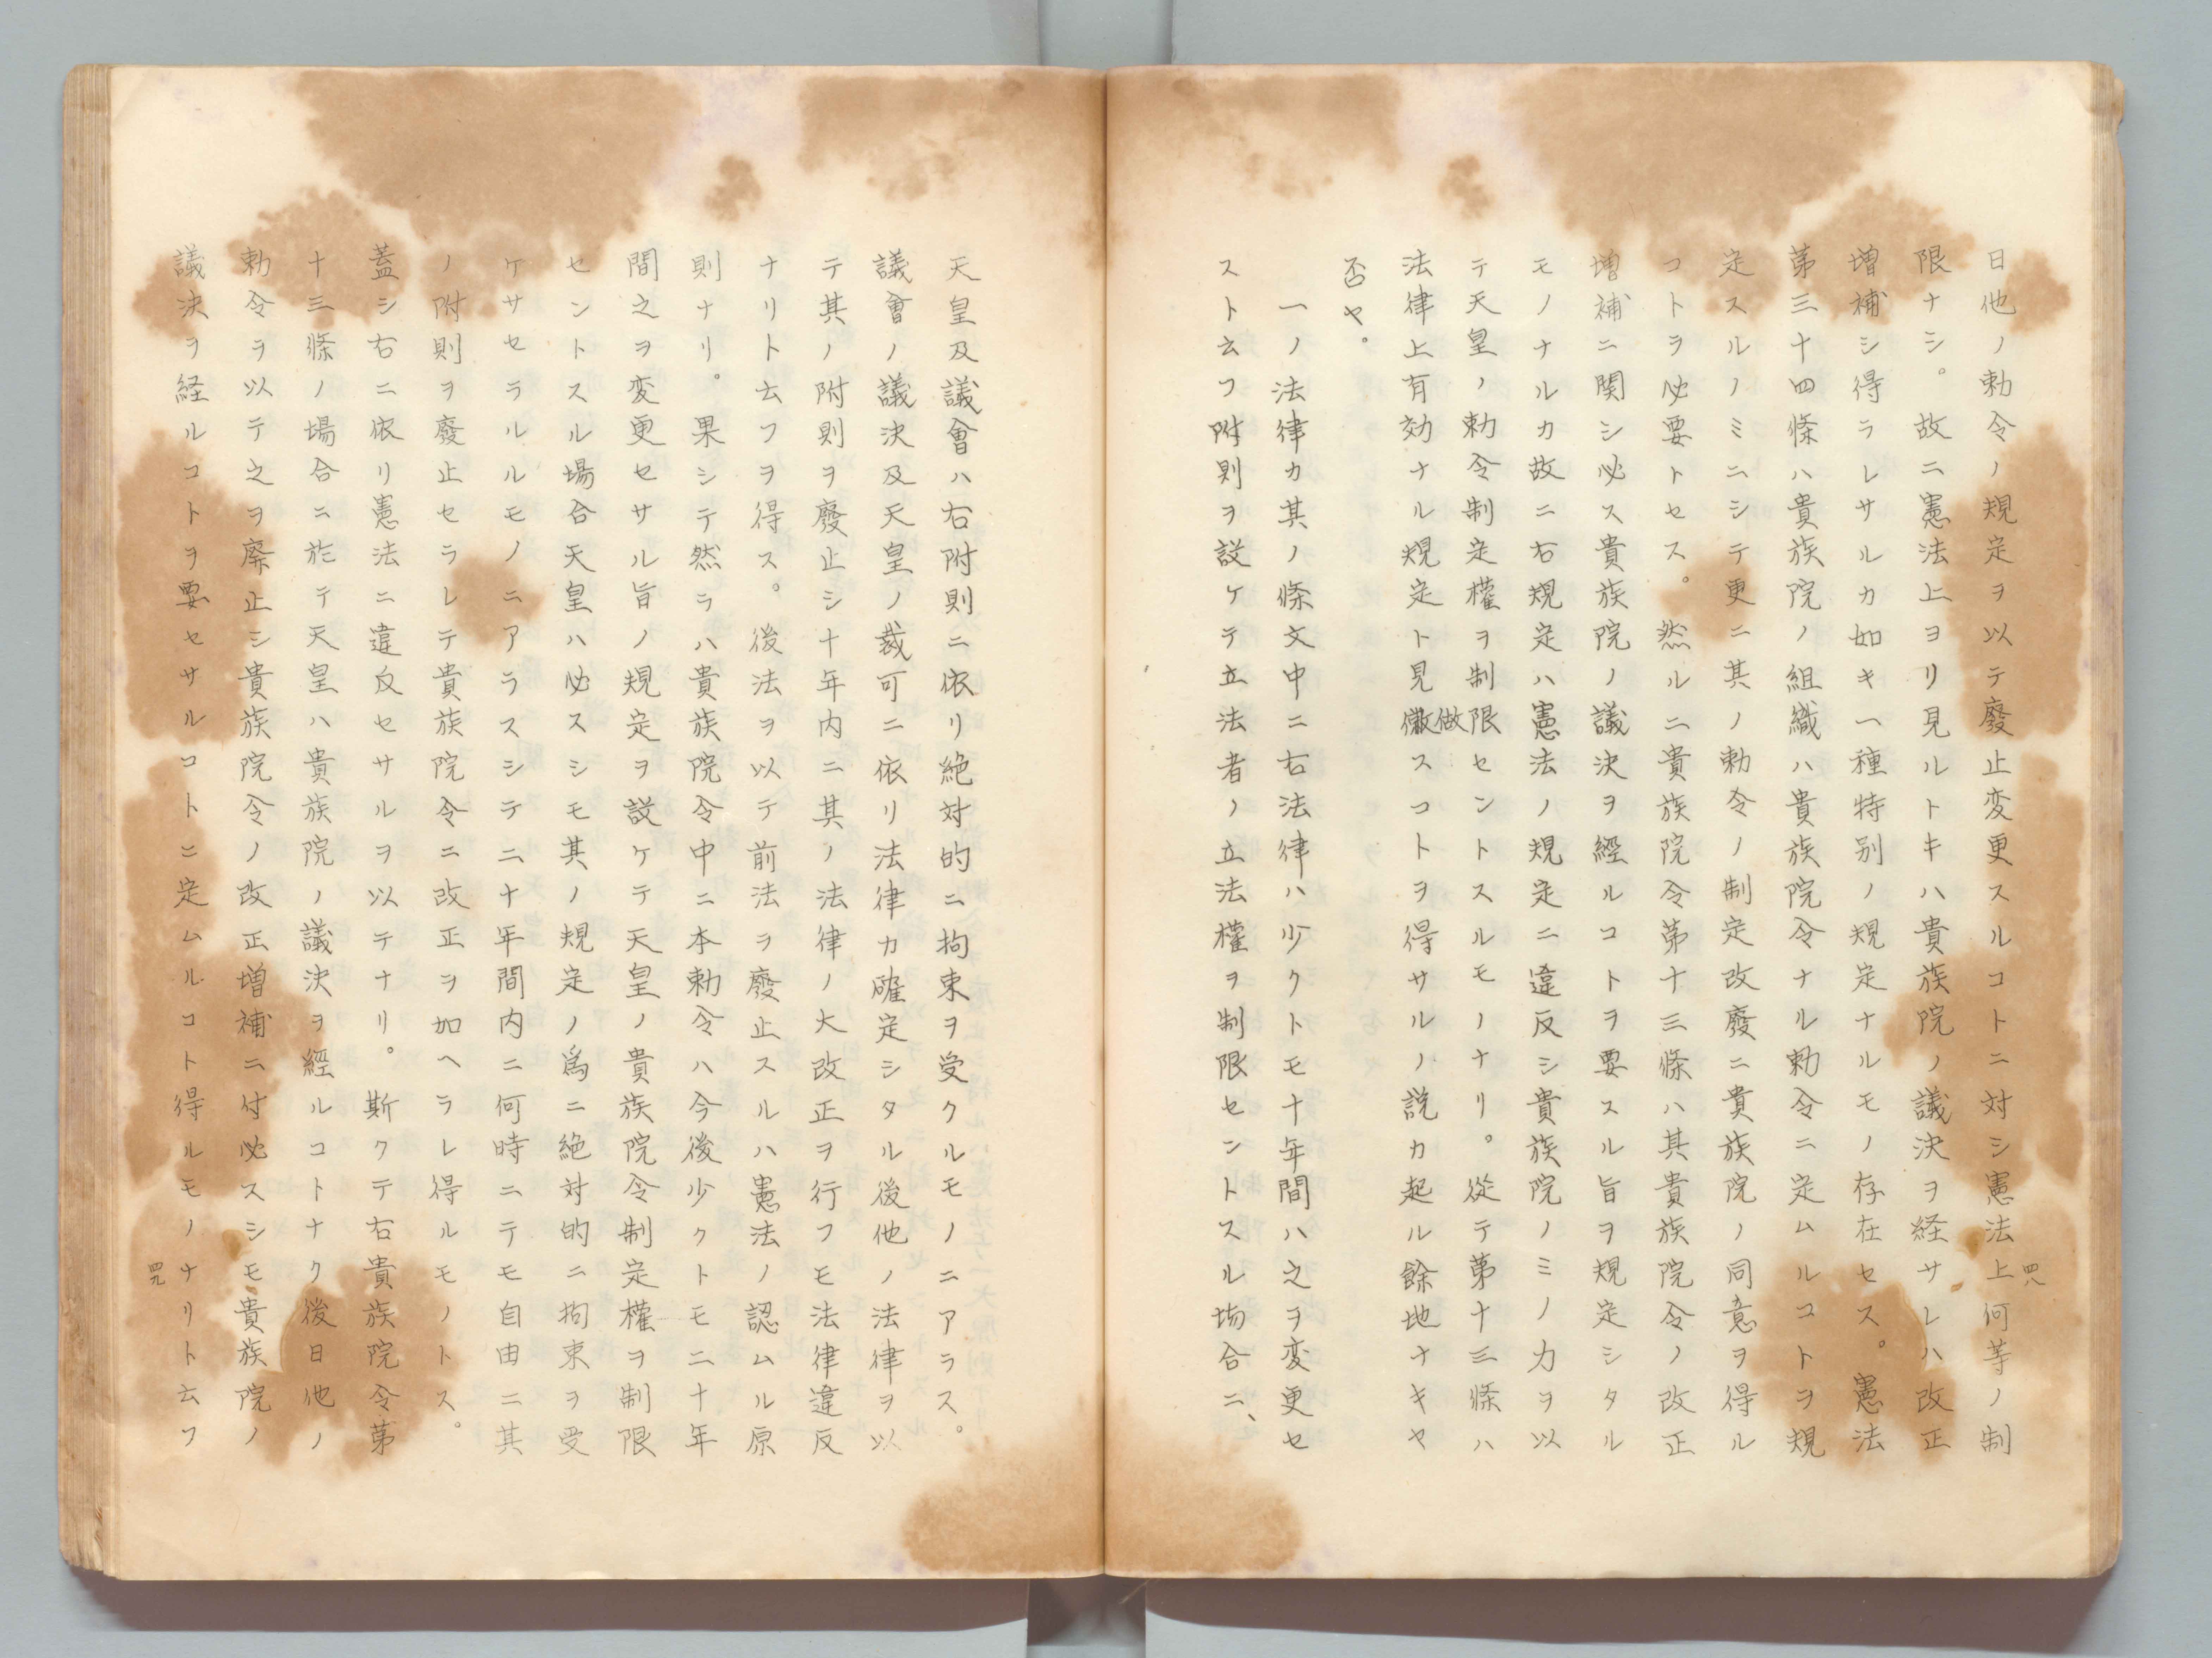 日他ノ勅令ノ規定ヲ以テ廢止変更スルコトニ対シ憲法上何等ノ制
限ナシ。故ニ憲法上ヨリ見ルトキハ貴族院ノ議決ヲ経サレハ改正
増補シ得ラレサルカ如キ一種特別ノ規定ナルモノ存在セス。憲法
第三十四條ハ貴族院ノ組織ハ貴族院令ナル勅令ニ定ムルコトヲ規
定スルノミニシテ更ニ其ノ勅令ノ制定改廢ニ貴族院ノ同意ヲ得ル
コトヲ必要トセス。然ルニ貴族院令第十三條ハ其貴族院令ノ改正
増補ニ関シ必ス貴族院ノ議決ヲ經ルコトヲ要スル旨ヲ規定シタル
モノナルカ故ニ右規定ハ憲法ノ規定ニ違反シ貴族院ノミノ力ヲ以
テ天皇ノ勅令制定權ヲ制限セントスルモノナリ。從テ第十三條ハ
做
法律上有効ナル規定ト見儆スコトヲ得サルノ説カ起ル餘地ナキヤ
否ヤ。
一ノ法律カ其ノ條文中ニ右法律ハ少クトモ十年間ハ之ヲ変更セ
スト云フ附則ヲ設ケテ立法者ノ立法權ヲ制限セントスル場合ニ、
四八
天皇及議會ハ右附則ニ依リ絶対的ニ拘束ヲ受クルモノニアラス。
議會ノ議決及天皇ノ裁可ニ依リ法律カ確定シタル後他ノ法律ヲ以
テ其ノ附則ヲ廢止シ十年内ニ其ノ法律ノ大改正ヲ行フモ法律違反
ナリト云フヲ得ス。後法ヲ以テ前法ヲ廢止スルハ憲法ノ認ムル原
則ナリ。果シテ然ラハ貴族院令中ニ本勅令ハ今後少クトモ二十年
間之ヲ変更セサル旨ノ規定ヲ設ケテ天皇ノ貴族院令制定權ヲ制限
セントスル場合天皇ハ必スシモ其ノ規定ノ爲ニ絶対的ニ拘束ヲ受
ケサセラルルモノニアラスシテ二十年間内ニ何時ニテモ自由ニ其
ノ附則ヲ廢止セラレテ貴族院令ニ改正ヲ加ヘラレ得ルモノトス。
蓋シ右ニ依リ憲法ニ違反セサルヲ以テナリ。斯クテ右貴族院令第
十三條ノ場合ニ於テ天皇ハ貴族院ノ議決ヲ經ルコトナク後日他ノ
勅令ヲ以テ之ヲ廃止シ貴族院令ノ改正増補ニ付必スシモ貴族院ノ
議決ヲ経ルコトヲ要セサルコトニ定ムルコト得ルモノナリト云フ
四九